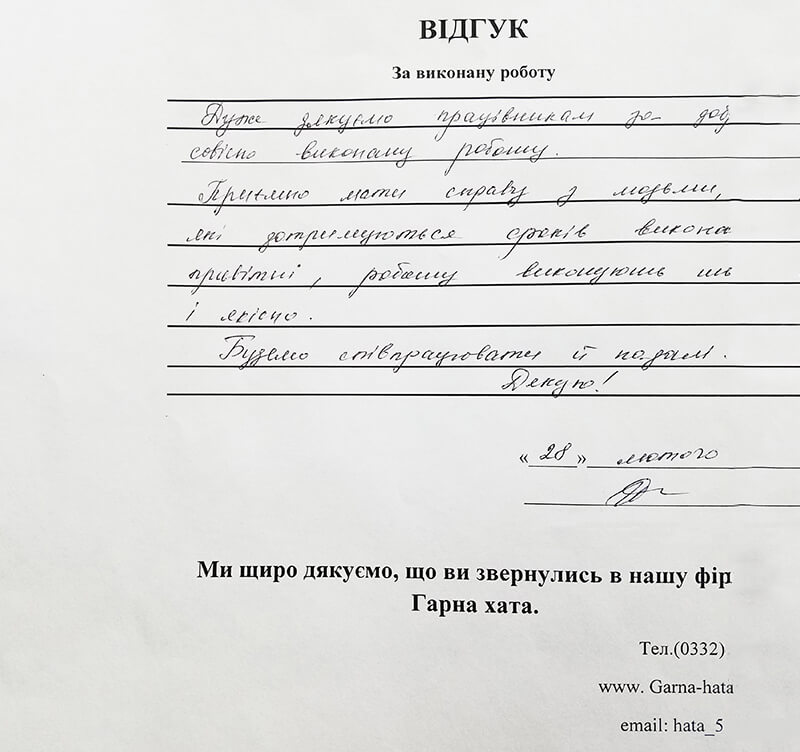 ВІДГУК
За виконану роботу
Дуже дякуємо працівникам за доб
совісно виконану роботу.
Приємно мати справу з людьми,
які дотримуються строків викона
привітні, роботу виконують шв
і якісно.
Будемо співпрацювати й надалі.
Дякую!
«28» лютого
Ми щиро дякуємо, що ви звернулись в нашу фір
Гарна хата.
Тел.(0332)
www. Garna-hata
email: hata_5